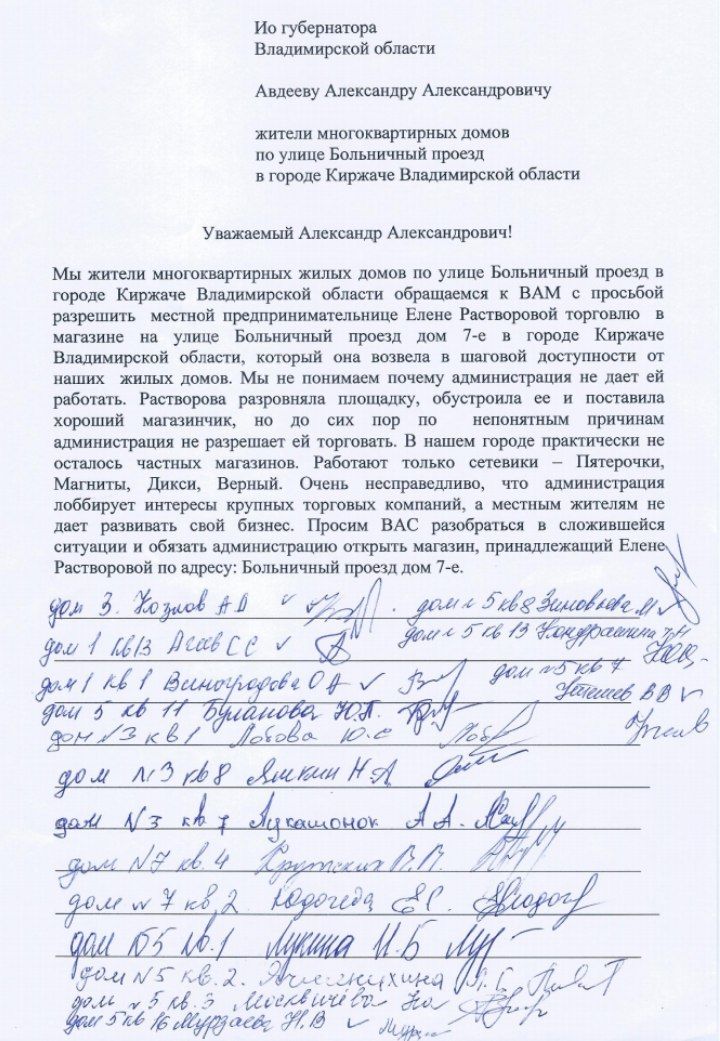 Ио губернатора
Владимирской области
Авдееву Александру Александровичу
жители многоквартирных домов
по улице Больничный проезд
в городе Киржаче Владимирской области
Уважаемый Александр Александрович!
Мы жители многоквартирных жилых домов по улице Больничный проезд в
городе Киржаче Владимирской области обращаемся к ВАМ с просьбой
разрешить местной предпринимательнице Елене Растворовой торговлю в
магазине на улице Больничный проезд дом 7-е в городе Киржаче
Владимирской области, который она возвела в шаговой доступности от
наших жилых домов. Мы не понимаем почему администрация не дает ей
работать. Растворова разровняла площадку, обустроила ее и поставила
хороший магазинчик, но до сих пор по непонятным причинам
администрация не разрешает ей торговать. В нашем городе практически не
осталось частных магазинов. Работают только сетевики – Пятерочки,
Магниты, Дикси, Верный. Очень несправедливо, что администрация
лоббирует интересы крупных торговых компаний, а местным жителям не
дает развивать свой бизнес. Просим ВАС разобраться в сложившейся
ситуации и обязать администрацию открыть магазин, принадлежащий Елене
Растворовой по адресу: Больничный проезд дом 7-е.
дом 3. Козлов А Д
дом 5 кв 8 Зиновьева М
дом 1 кв 13 Агаев С С
дом 5 кв 13 Кондрашина
дом 1 кв 1 Виноградова О А
дом №5 кв 7
В В
дом 5 кв 11 Буланова Ю.П.
дом №3 кв 1 Лобова Ю.С
дом №3 кв 8 Яшкин Н А
дом №3 кв 7 Лукашонок А А.
дом №7 кв. 4 Крутских В.В.
дом №7 кв 2. Е С.
дом 5 кв. 1 Лукина И. Б
дом №5 кв. 2.
дом №5 кв. 3 Москвичёва
дом 5 кв 16 Мурзаева Н. В